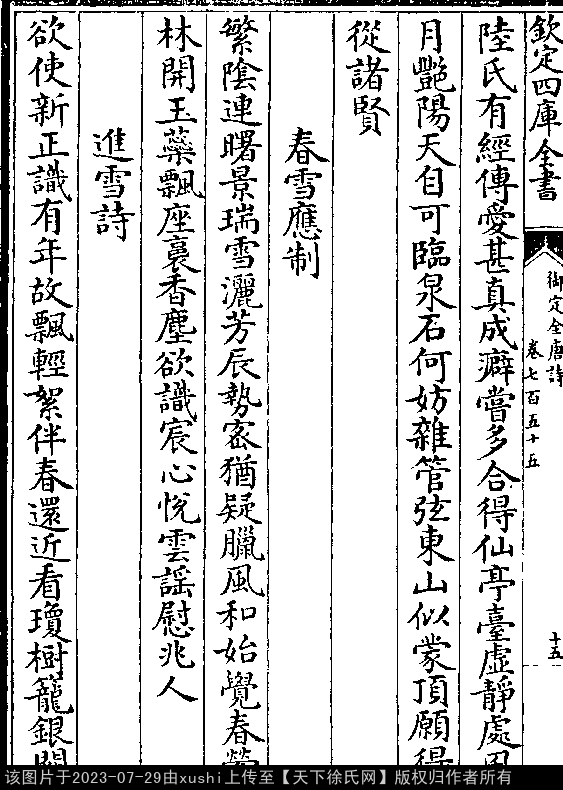 欽定四庫全書
御定全唐詩
卷七百五十五
十五
陸氏有經傳愛甚真成癖嘗多合得仙亭臺虛靜處風
月艷陽天自可臨泉石何妨雜管弦東山似蒙頂願得
從諸賢
春雪應制
繁陰連曙景瑞雪灑芳辰勢密猶疑臘風和始覺春
林開玉蘂飄座裏香塵欲識宸心悅雲謡慰兆人
進雪詩
欲使新正識有年故飄輕絮伴春還近看瓊樹籠銀
该图片于2023-07-29由xushi上传至【天下徐氏网】版权归作者所有